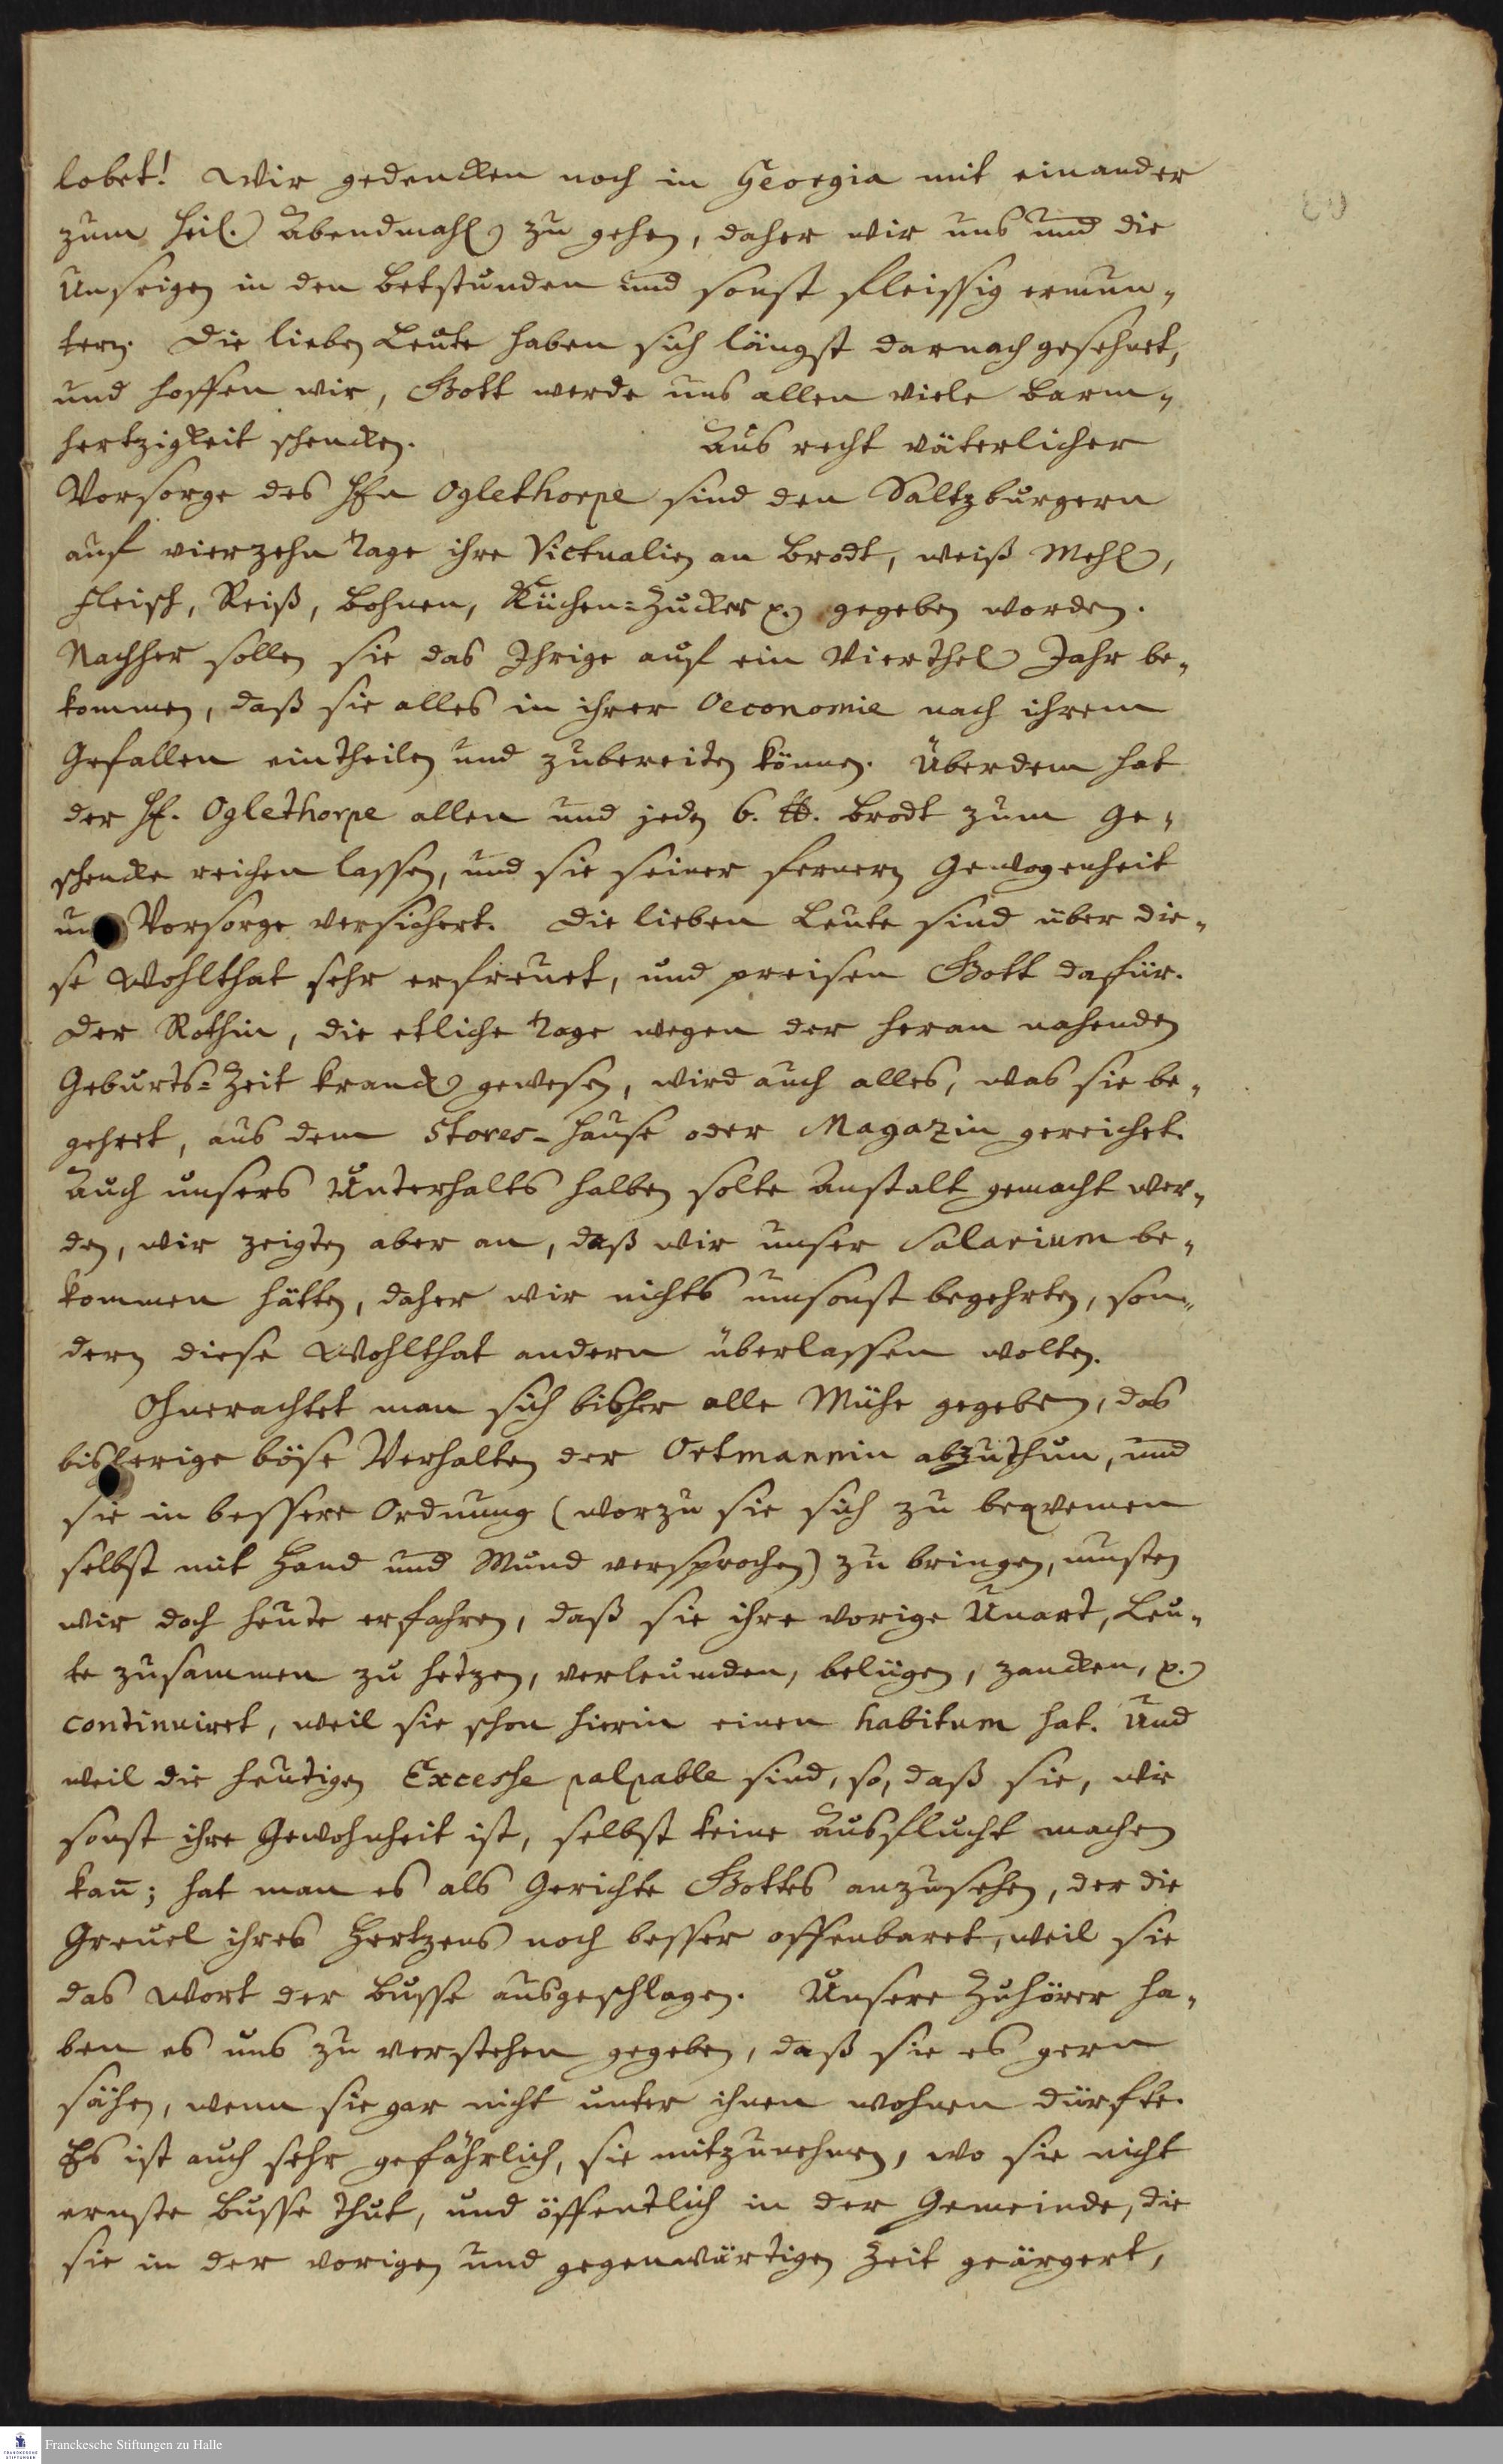 lobet! Wir gedencken noch in Georgia mit einander
zum heil. Abendmahl zu gehen, daher wir uns und die
Unsrigen in den Betstunden und sonst fleissig ermun-
tern. Die lieben Leute haben sich längst darnach gesehnet,
und hoffen wir, Gott werde uns allen viele Barm-
hertzigkeit schencken. Aus recht väterlicher
Vorsorge des Hn Oglethorpe sind den Saltzburgern
auf vierzehn Tage ihre Victualien an Brodt, weiß Mehl,
Fleisch, Reiß, Bohnen, Küchen=Zucker p. gegeben worden.
Nachher sollen sie das Ihrige auf ein Vierthel Jahr be-
kommen, daß sie alles in ihrer Oeconomie nach ihrem
Gefallen eintheilen und zubereiten können. Überdem hat
der H. Oglethorpe allen und jeden 6. ℔. Brodt zum Ge-
schencke reichen lassen, und sie seiner fernern Gewogenheit
un Vorsorge versichert. Die lieben Leute sind über die-
se Wohlthat sehr erfreuet, und preisen Gott dafür.
Der Rothin, die etliche Tage wegen der heran nahenden
Geburts=Zeit kranck gewesen, wird auch alles, was sie be-
gehret, aus dem Stores-Hause oder Magazin gereichet.
Auch unsers Unterhalts halben solte Anstalt gemacht wer-
den, wir zeigten aber an, daß wir unser Salarium be-
kommen hätten, daher wir nichts umsonst begehrten, son-
dern diese Wohlthat andern überlassen wolten.
Ohnerachtet man sich bisher alle Mühe gegeben, das
bisherige böse Verhalten der Ortmannin abzuthun, und
sie in bessere Ordnung (worzu sie sich zu beqvemen
selbst mit Hand und Mund versprochen) zu bringen, musten
wir doch heute erfahren, daß sie ihre vorige Unart, Leu-
te zusammen zu hetzen, verleumden, belügen, zancken, p.
continuiret, weil sie schon hierin einen habitum hat. Und
weil die heutigen Excesse palpable sind, so, daß sie, wie
sonst ihre Gewohnheit ist, selbst keine Ausflucht machen
kan̄; hat man es als Gerichte Gottes anzusehen, der die
Greuel ihres Hertzens noch besser offenbaret, weil sie
das Wort der Busse ausgeschlagen. Unsere Zuhörer ha-
ben es uns zu verstehen gegeben, daß sie es gern
sähen, wenn sie gar nicht unter ihnen wohnen dürfte.
Es ist auch sehr gefährlich, sie mitzunehmen, wo sie nicht
ernste Busse thut, und öffentlich in der Gemeinde, die
sie in der vorigen und gegenwärtigen Zeit geärgert,
FRANCKESCHE STIFTUNGEN
Franckesche Stiftungen zu Halle